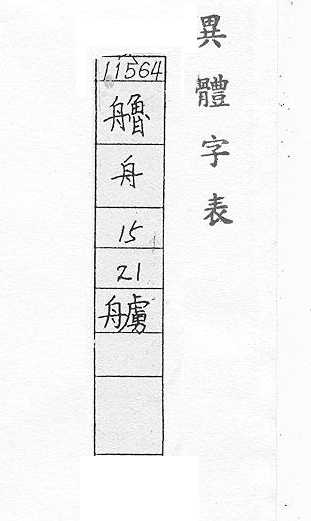 異體字表
11564
艪
舟
15
21
艣